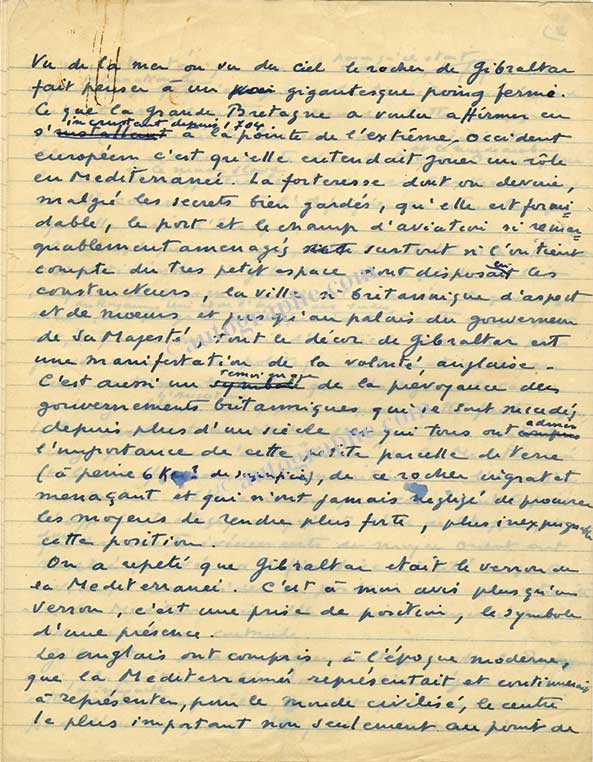 Vu de la mer ou vu du ciel le rocher de Gibraltar
fait penser à un gigantesque poing fermé.
Ce que la Grande Bretagne a voulu affirmer en
incrustant depuis 1704
s'installant à la pointe de l'extrême Occident
européen c'est qu'elle entendait jouer un rôle
en Mediterranée. La forteresse dont on devine,
malgré les secrets bien gardés, qu'elle est formi-
dable, le port et le champ d'aviation si remar-
quablement aménagés surtout si l'on tient
compte du tres petit espace dont disposaient les
constructeurs, la ville si britannique d'aspect
et de mœurs et jusqu'au palais du gouverneur
de Sa Majesté tout le décor de Gibraltar est
une manifestation de la volonté anglaise.
temoignage
C'est aussi un symbole de la prévoyance des
gouvernements britanniques qui se sont succédés
depuis plus d'un siècle et qui tous ont admis
compris
l'importance de cette petite parcelle de terre
(à peine 6 K de superficie), de ce rocher ingrat et
menaçant et qui n'ont jamais négligé de procurer
les moyens de rendre plus forte, plus inexpugnable
cette position.
On a repeté que Gibraltar etait le verrou de
la Mediterranée. C'est à mon avis plus qu'un
verrou, c'est une prise de position, le symbole
d'une présence.
Les anglais ont compris, à l'époque moderne,
que la Mediterrannée représentait et continuerait
à représenter, pour le monde civilisé, le centre
le plus important non seulement au point de
© autographe.com